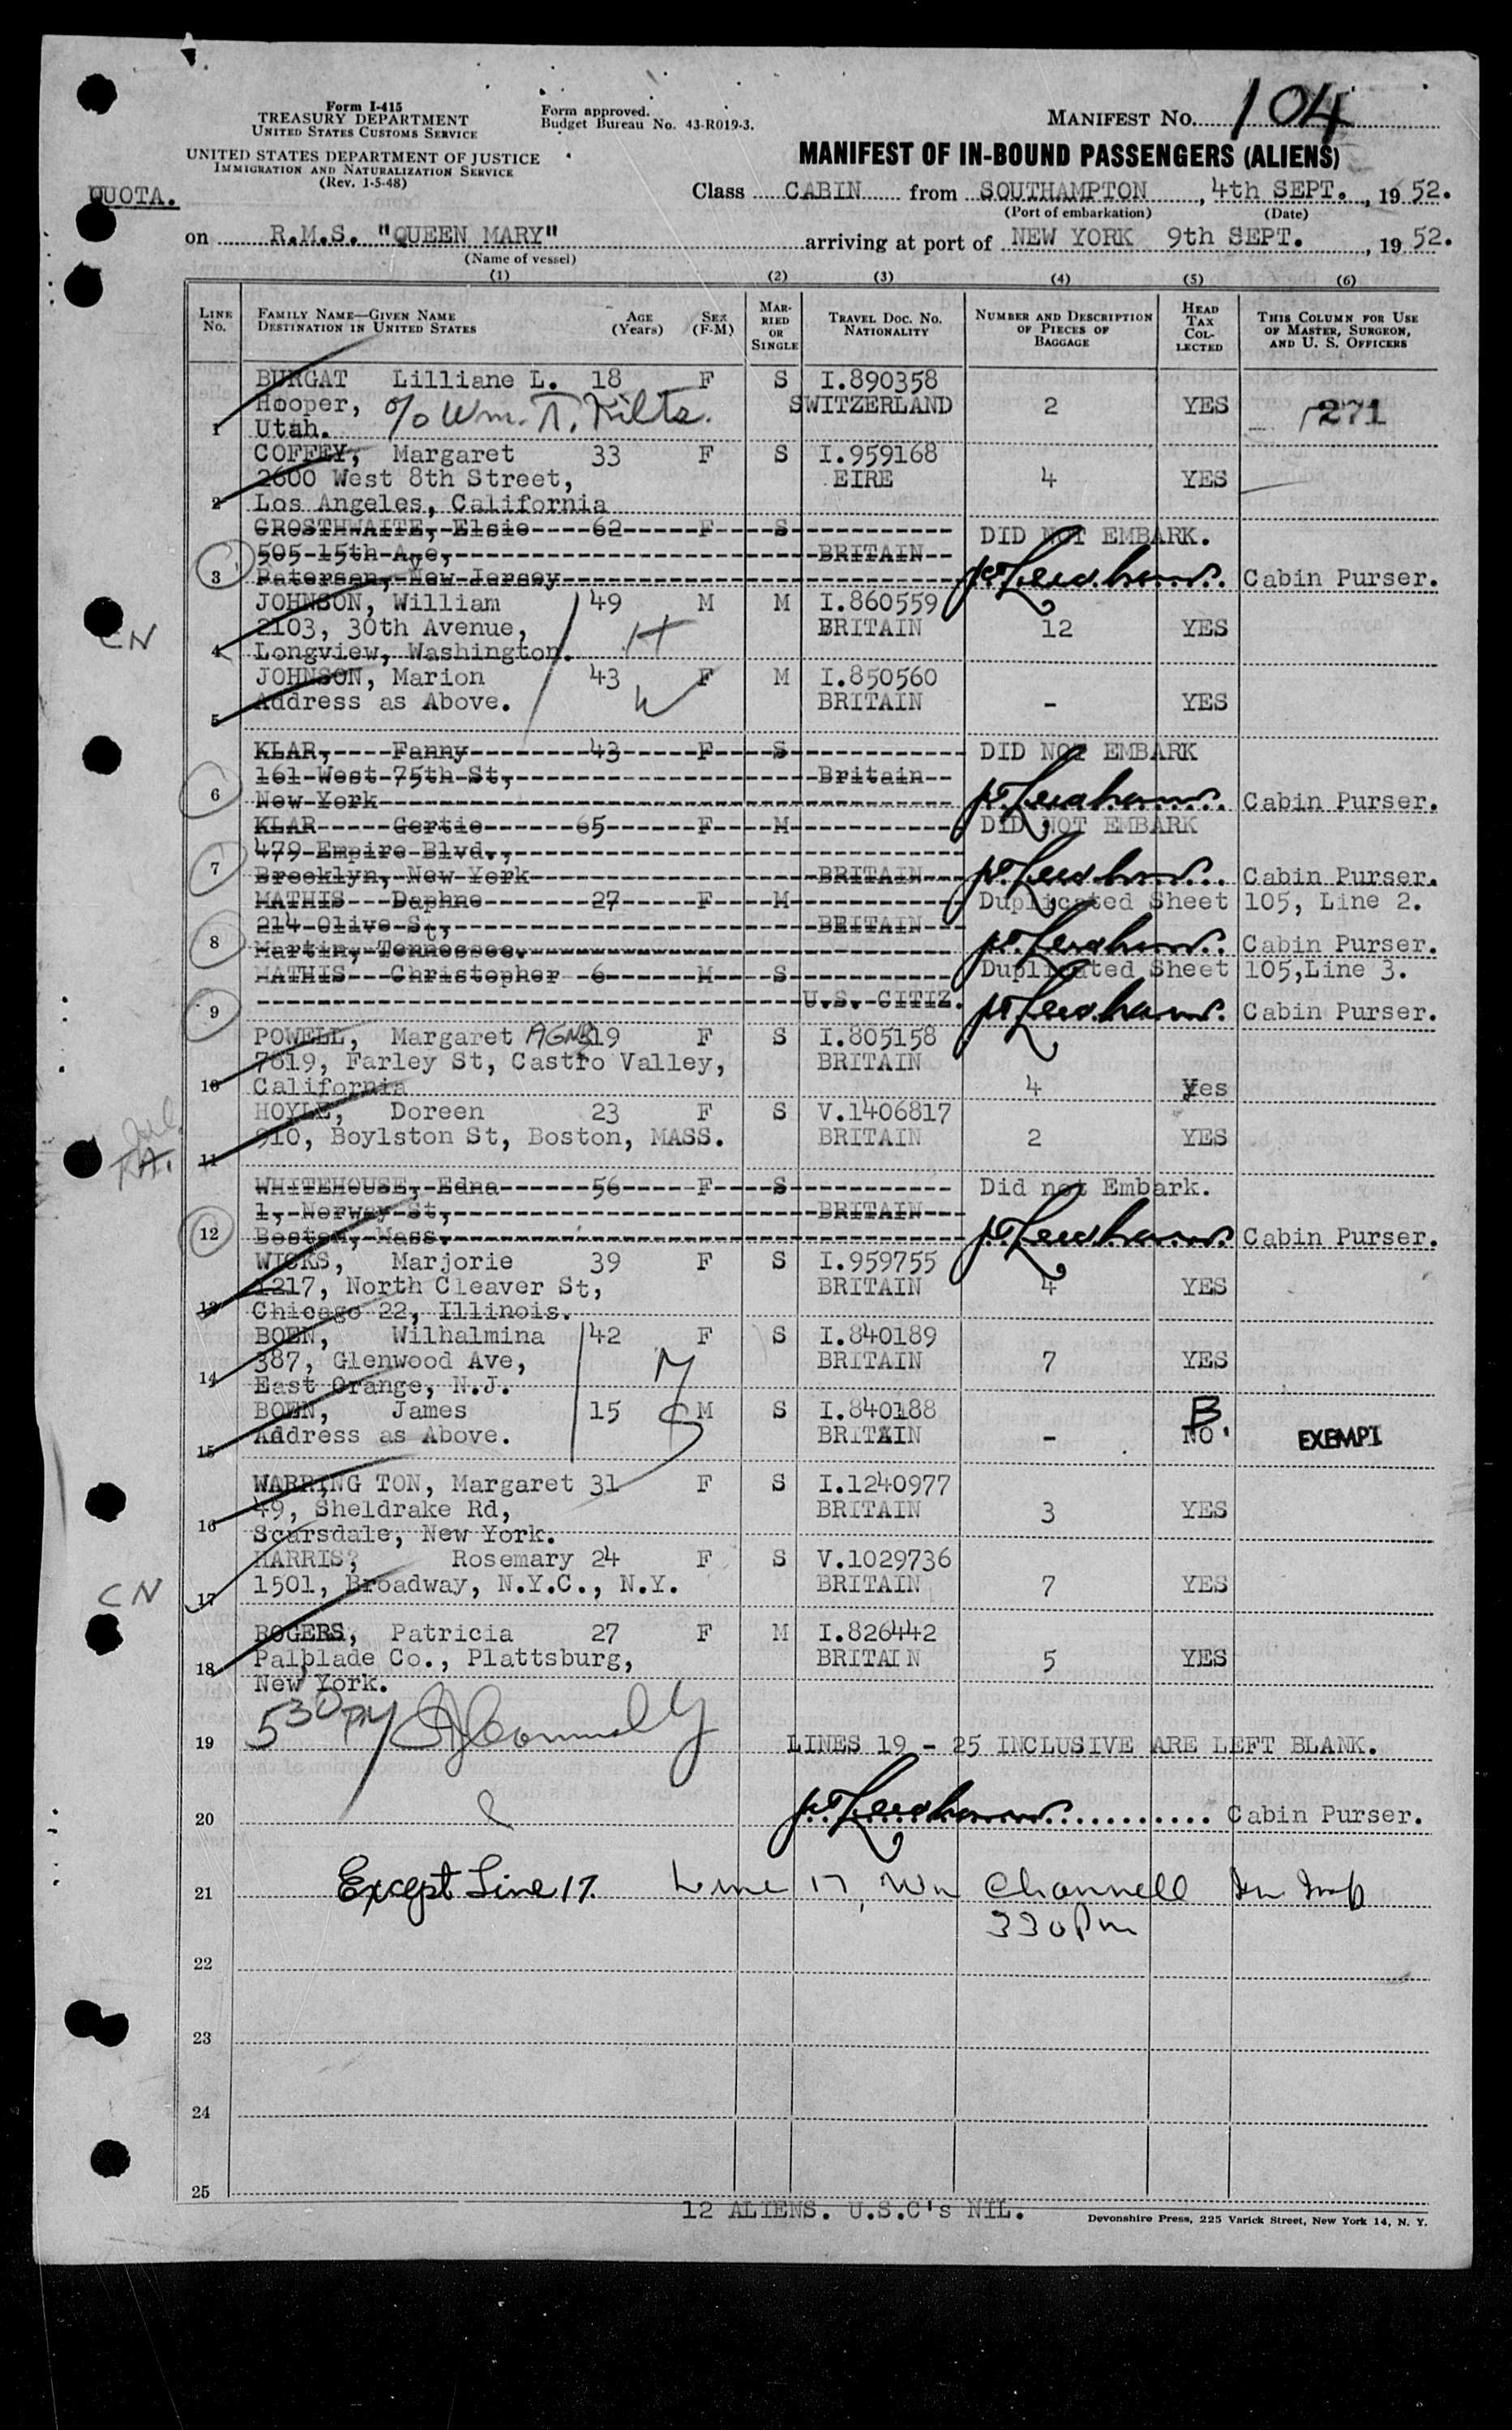 Form I-415
TREASURY DEPARTMENT
UNITED STATES CUSTOMS SERVICE
UNITED STATES DEPARTMENT OF JUSTICE
IMMIGRATION AND NATURALIZATION SERVICE
(Rev. 1-5-48)
Form approved.
Budget Bureau No. 43-R019-3.
MANIFEST NO. 104
MANIFEST OF IN-BOUND PASSENGERS (ALIENS)
QUOTA.
Class CABIN from SOUTHAMPTON, 4th SEPT., 1952.
(Port of embarkation) (Date)
on R.M.S. "QUEEN MARY" arriving at port of NEW YORK 9th SEPT., 1952.
(Name of vessel)
(1) (2) (3) (4) (5) (6)
LINE NO. FAMILY NAME—GIVEN NAME DESTINATION IN UNITED STATES AGE (Years) SEX (F-M) MARRIED OR SINGLE TRAVEL DOC. NO. NATIONALITY NUMBER AND DESCRIPTION OF PIECES OF BAGGAGE HEAD TAX COLLECTED THIS COLUMN FOR USE OF MASTER, SURGEON, AND U. S. OFFICERS
BURGAT Lilliane L. 18 F S I.890358
Hooper, c/o Wm. T. Kilts. SWITZERLAND 2 YES 271
1 Utah.
COFFEY, Margaret 33 F S I.959168
2600 West 8th Street, EIRE 4 YES
2 Los Angeles, California
CROSTHWAITE, Elsie 62 F S DID NOT EMBARK.
505 15th Ave, BRITAIN
3 Paterson, New Jersey Cabin Purser.
JOHNSON, William 49 M M I.860559
2103, 30th Avenue, H BRITAIN 12 YES
CN
4 Longview, Washington.
JOHNSON, Marion 43 F M I.850560
Address as Above. W BRITAIN - YES
5
KLAR, Fanny 43 F S DID NOT EMBARK
161 West 75th St, Britain
6 New York Cabin Purser.
KLAR Gertie 65 F M DID NOT EMBARK
479 Empire Blvd.,
7 Brooklyn, New York BRITAIN Cabin Purser.
MATHIS Daphne 27 F M Duplicated Sheet 105, Line 2.
214 Olive St, BRITAIN
8 Martin, Tennessee. Cabin Purser.
MATHIS Christopher 6 M S Duplicated Sheet 105,Line 3.
9 U.S. CITIZ. Cabin Purser.
POWELL, Margaret AGNES 19 F S I.805158
7819, Farley St, Castro Valley, BRITAIN
10 California 4 Yes
HOYLE, Doreen 23 F S V.1406817
910, Boylston St, Boston, MASS. BRITAIN 2 YES
11
WHITEHOUSE, Edna 56 F S Did not Embark.
1, Norway St, BRITAIN
12 Boston, Mass. Cabin Purser.
WICKS, Marjorie 39 F S I.959755
1217, North Cleaver St, BRITAIN 4 YES
13 Chicago 22, Illinois.
BOEN, Wilhalmina 42 F S I.840189
387, Glenwood Ave, M BRITAIN 7 YES
14 East Orange, N.J.
BOEN, James 15 S M S I.840188 B.
Address as Above. BRITAIN - NO EXEMPT
15
WARRING TON, Margaret 31 F S I.1240977
49, Sheldrake Rd, BRITAIN 3 YES
16 Scarsdale, New York.
HARRIS, Rosemary 24 F S V.1029736
CN
1501, Broadway, N.Y.C., N.Y. BRITAIN 7 YES
17
ROGERS, Patricia 27 F M I.826442
Palblade Co., Plattsburg, BRITAIN 5 YES
18 New York.
530 PM
19 LINES 19 - 25 INCLUSIVE ARE LEFT BLANK.
20 Cabin Purser.
21 Except Line 17. Line 17, Wm Channell
330 Pm
22
23
24
25
12 ALIENS. U.S.C's NIL.
Devonshire Press, 225 Varick Street, New York 14, N. Y.